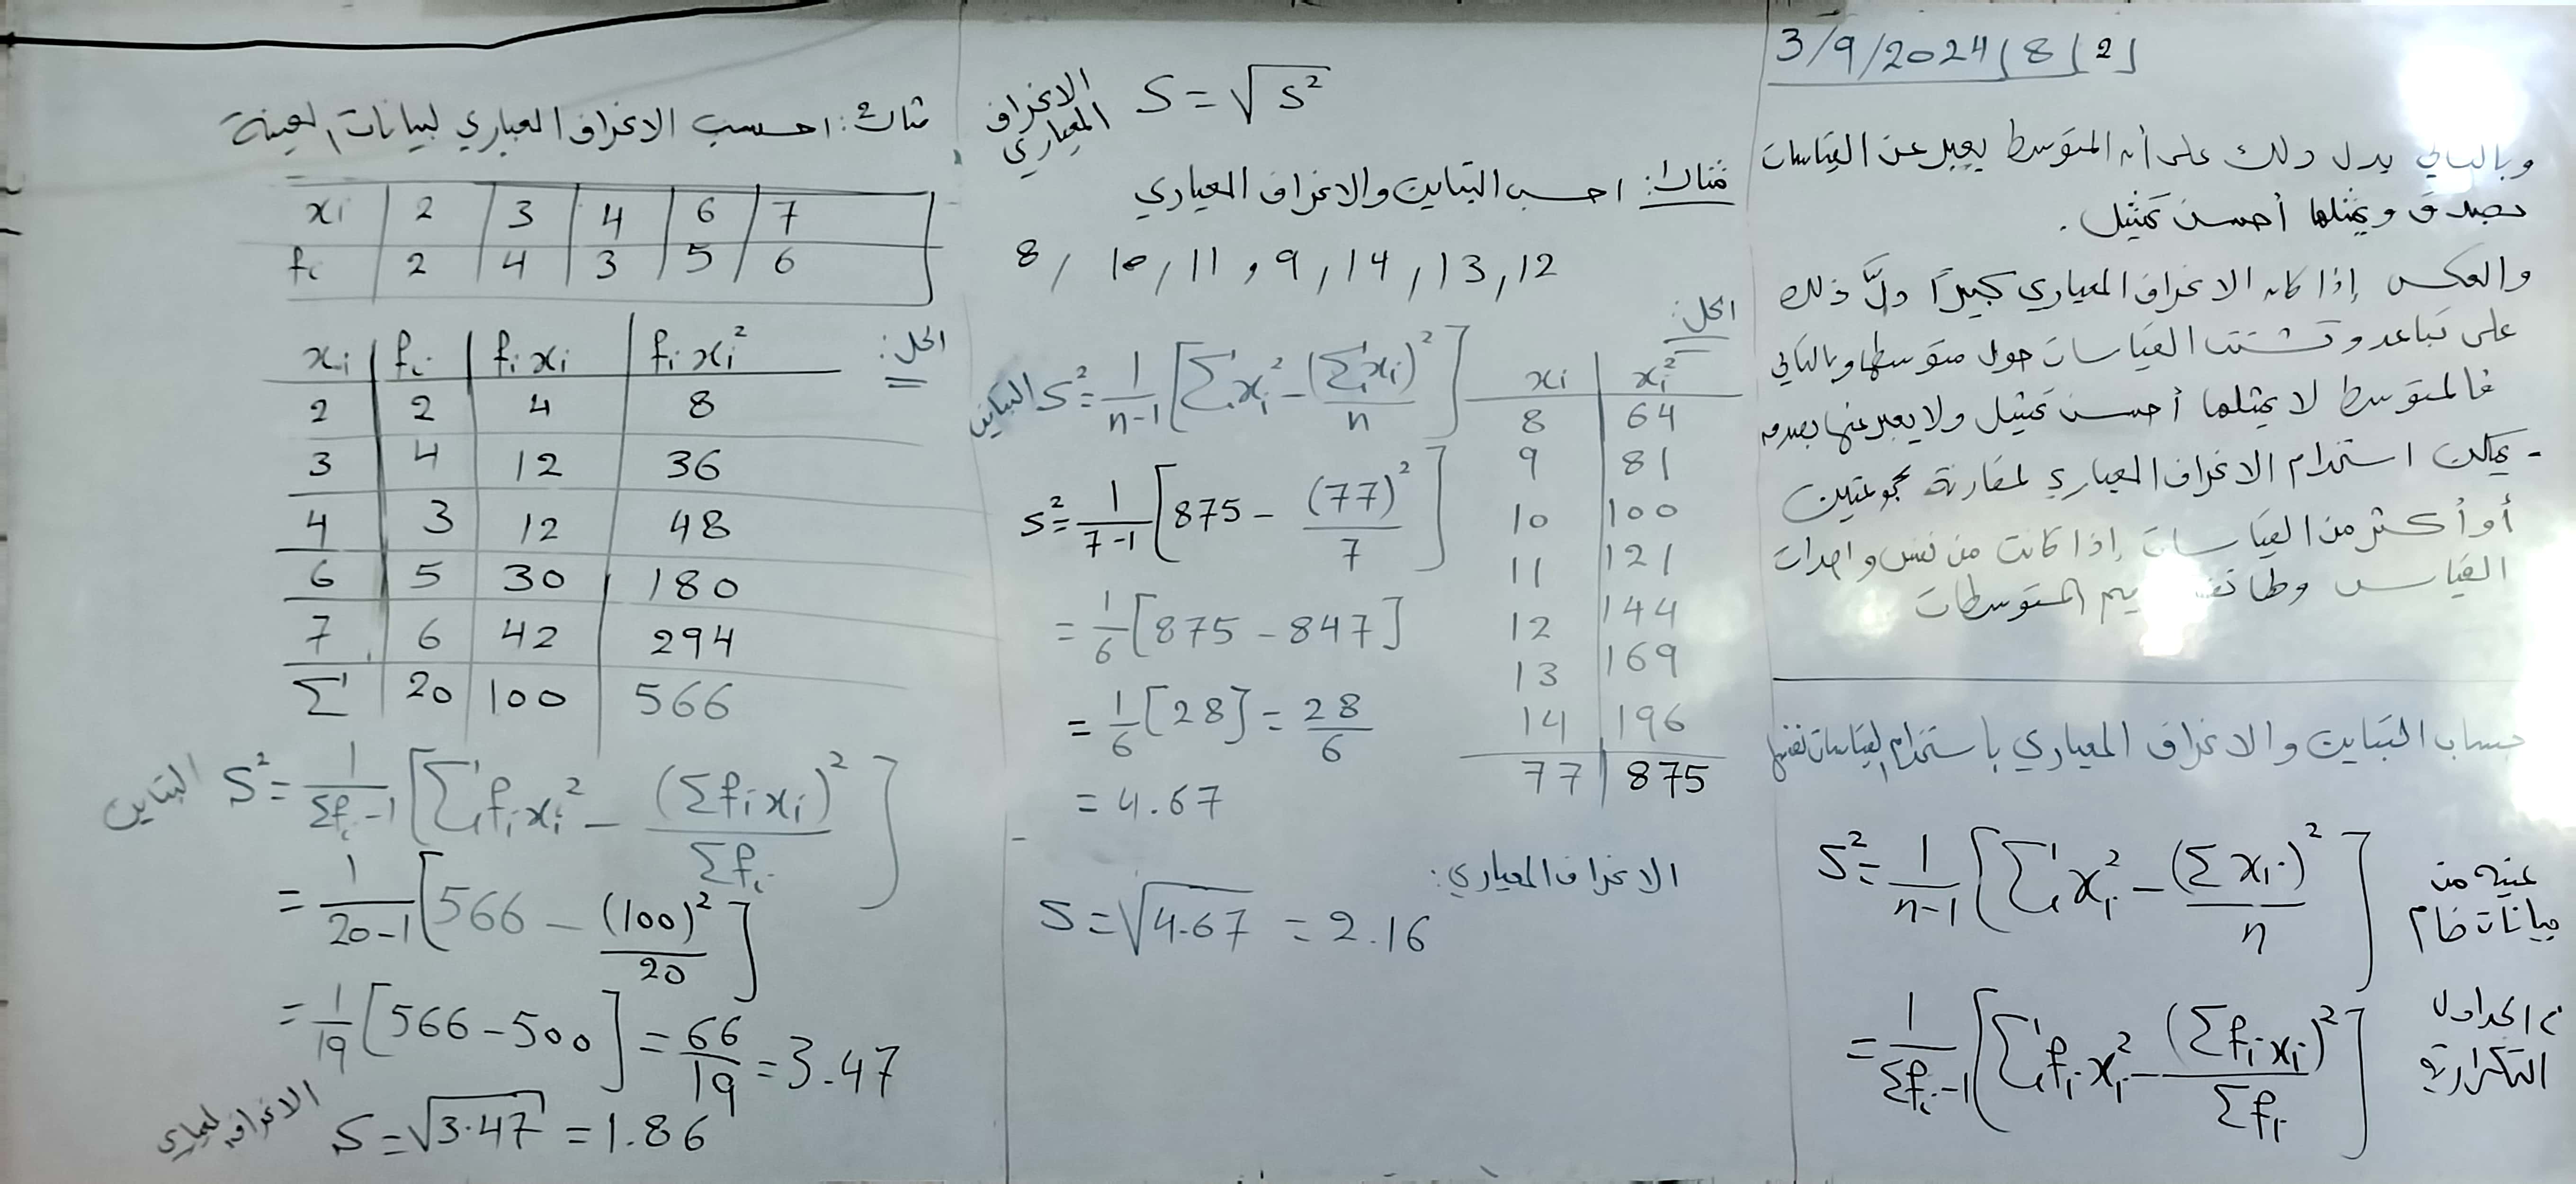 3/9/2024 | 8 | 2
وبالتالي يدل ذلك على أن المتوسط يعبر عن القياسات
بصدق ويمثلها أحسن تمثيل.
والعكس إذا كان الانحراف المعياري كبيرًا دلَّ ذلك
على تباعد وتشتت القياسات حول متوسطها وبالتالي
فالمتوسط لا يمثلها أحسن تمثيل ولا يعبر عنها بصدق
- يمكن استخدام الانحراف المعياري لمقارنة مجموعتين
أو أكثر من القياسات إذا كانت من نفس واحدات
القياس المتوسطات
حساب التباين والانحراف المعياري باستخدام القياسات نفسها
عينة من بيانات خام S² = 1/(n-1) [Σxi² - (Σxi)²/n]
الجداول التكرارية = 1/(Σfi-1) [Σfi xi² - (Σfi xi)²/Σfi]
الانحراف المعياري S = √S²
مثال: احسب التباين والانحراف المعياري
8, 10, 11, 9, 14, 13, 12
الحل:
xi | xi²
8 | 64
9 | 81
10 | 100
11 | 121
12 | 144
13 | 169
14 | 196
77 | 875
التباين S² = 1/(n-1) [Σxi² - (Σxi)²/n]
S² = 1/(7-1) [875 - (77)²/7]
= 1/6 [875 - 847]
= 1/6 [28] = 28/6
= 4.67
الانحراف المعياري:
S = √4.67 = 2.16
مثال: احسب الانحراف المعياري لبيانات العينة
xi | 2 | 3 | 4 | 6 | 7
fi | 2 | 4 | 3 | 5 | 6
الحل:
xi | fi | fi xi | fi xi²
2 | 2 | 4 | 8
3 | 4 | 12 | 36
4 | 3 | 12 | 48
6 | 5 | 30 | 180
7 | 6 | 42 | 294
Σ | 20 | 100 | 566
التباين S² = 1/(Σfi-1) [Σfi xi² - (Σfi xi)²/Σfi]
= 1/(20-1) [566 - (100)²/20]
= 1/19 [566 - 500] = 66/19 = 3.47
الانحراف المعياري S = √3.47 = 1.86